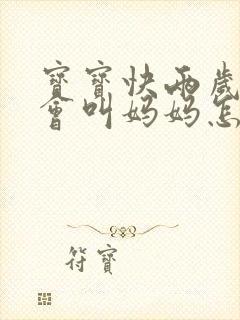 寶寶快兩歲
會叫媽媽怎
符寶